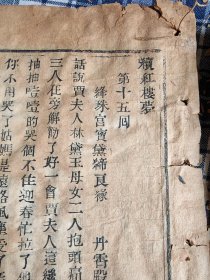 續紅樓夢
第十五回
絳珠宮寶黛締良緣　丹霄殿
話說賈夫人林黛玉母女二人抱頭痛
三人在旁解勸了好一會賈夫人這纔
抽抽噎噎的哭個不住迎春忙拉了
你不用哭了姑媽是遠路風塵受了